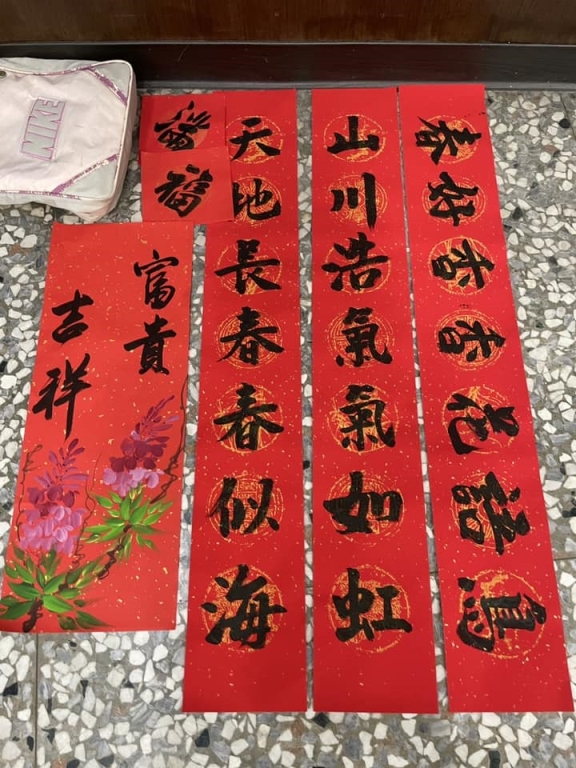 鳥語花香香好春
山川浩氣氣如虹
天地長春春似海
福
富貴
吉祥
NIKE